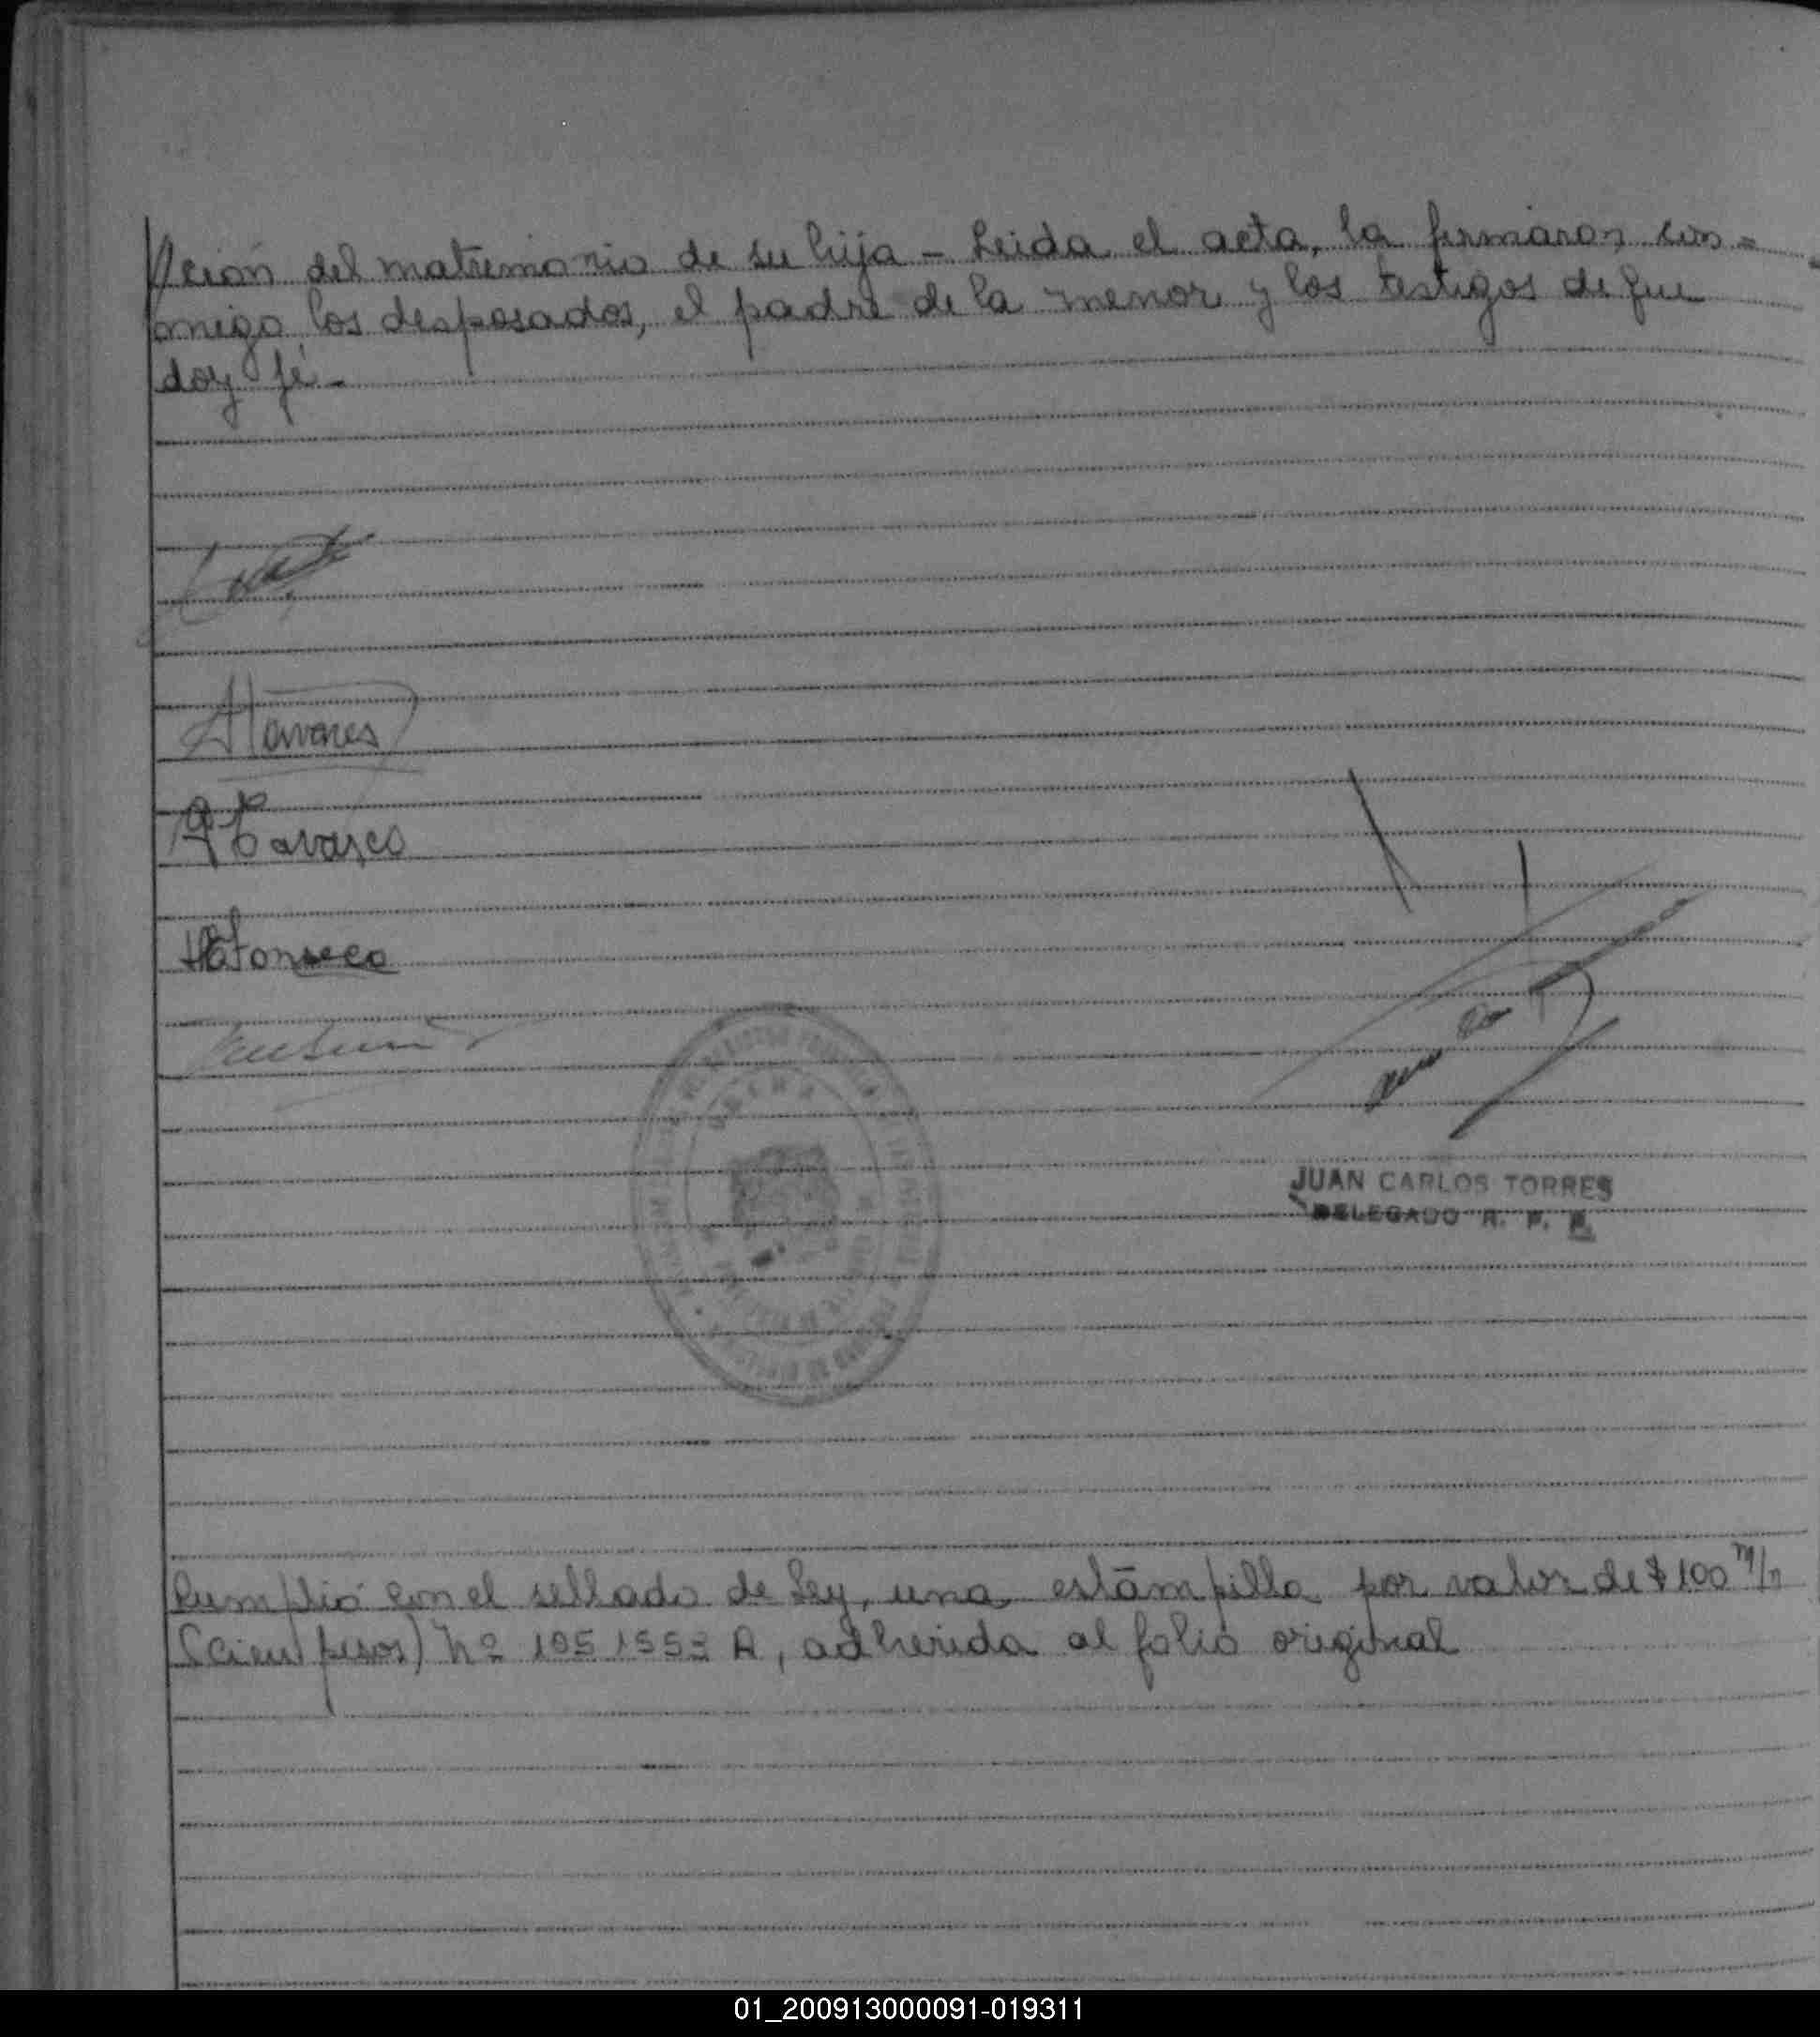 ción del matrimonio de su hija - Leida el acta, la firmaron con =
migo los desposados, el padre de la menor y los testigos de que
doy fé -
ATavares
Tavares
Fonseca
JUAN CARLOS TORRES
DELEGADO R. P. P.
Cumplió con el sellado de Ley, una estampilla por valor de $ 100 m/n
(cien pesos) Nº 1051553 A, adherida al folio original
01_200913000091-019311